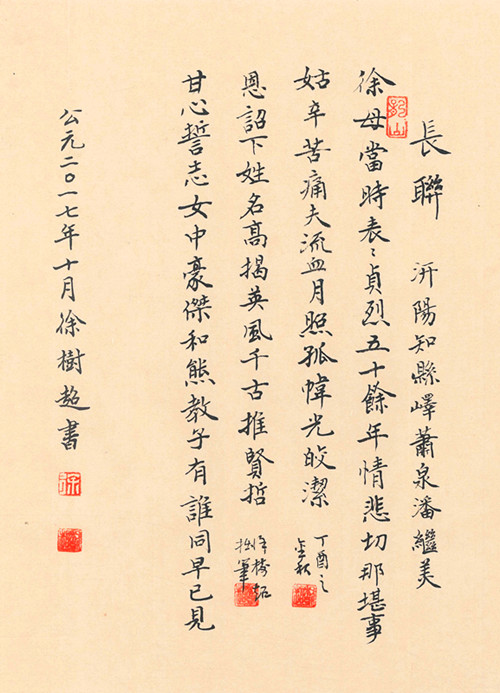 長聯 汧陽知縣嶧蕭泉潘繼美
徐母當時表〻貞烈五十餘年情悲切那堪事
姑辛苦痛夫流血月照孤幃光皎潔
丁酉之
金秋
恩詔下姓名高揭英風千古推賢哲
徐樹超
拙筆
甘心誓志女中豪傑和熊教子有誰同早已見
公元二〇一七年十月徐樹超書